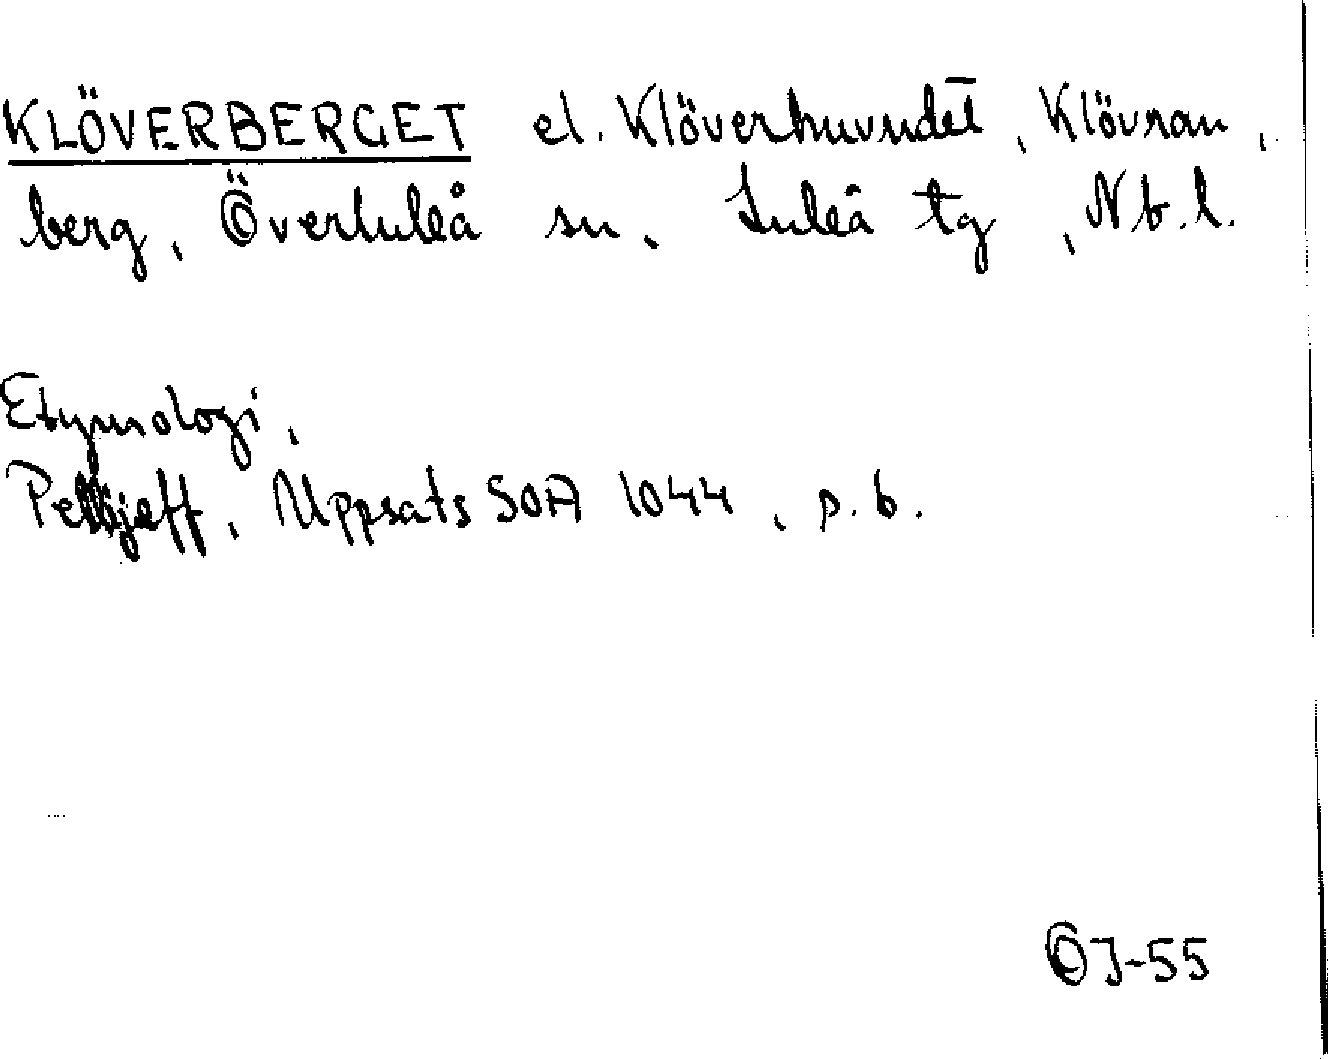 KLÖVERBERGET el. Klöverhuvudet, Klövran,
berg, Överluleå sn, Luleå tg, Nb.l.
Etymologi,
Pellijeff, Uppsats SOA 1044, s. 6.
OJ-55